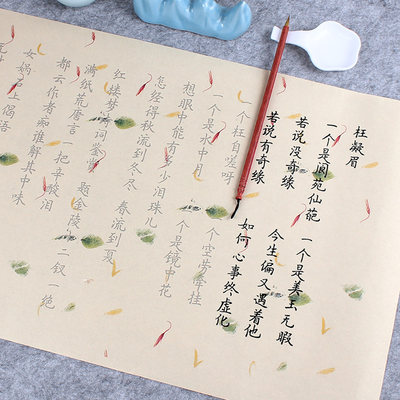 枉凝眉
一个是阆苑仙葩 一个是美玉无瑕
若说没奇缘 今生偏又遇着他
若说有奇缘 如何心事终虚化
一个枉自嗟呀 一个空劳牵挂
一个是水中月 一个是镜中花
想眼中能有多少泪珠儿
怎经得秋流到冬 春流到夏
红楼梦诗词鉴赏 题金陵十二钗一绝
满纸荒唐言 一把辛酸泪
都云作者痴 谁解其中味
女娲石上偈语